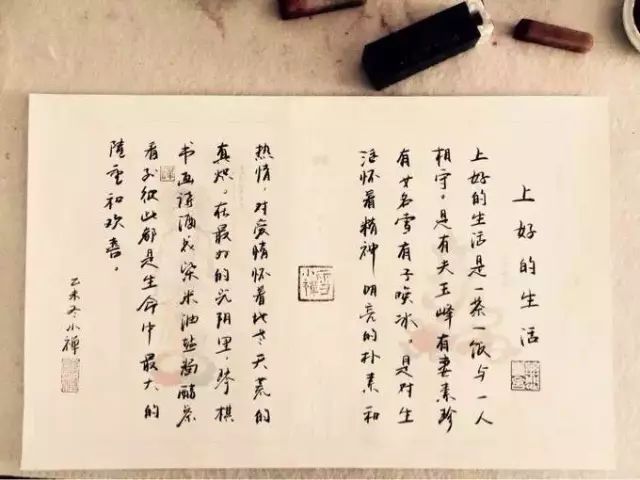 上好的生活
上好的生活是一茶一饭与一人
相守。是有夫玉峰有妻素珍
有女名雪有子唤冰。是对生
活怀着精神明亮的朴素和
热情，对爱情怀着地老天荒的
真炽。在最好的光阴里，琴棋
书画诗酒花柴米油盐酱醋茶
看到彼此都是生命中最大的
隆重和欢喜。
乙未冬小禅